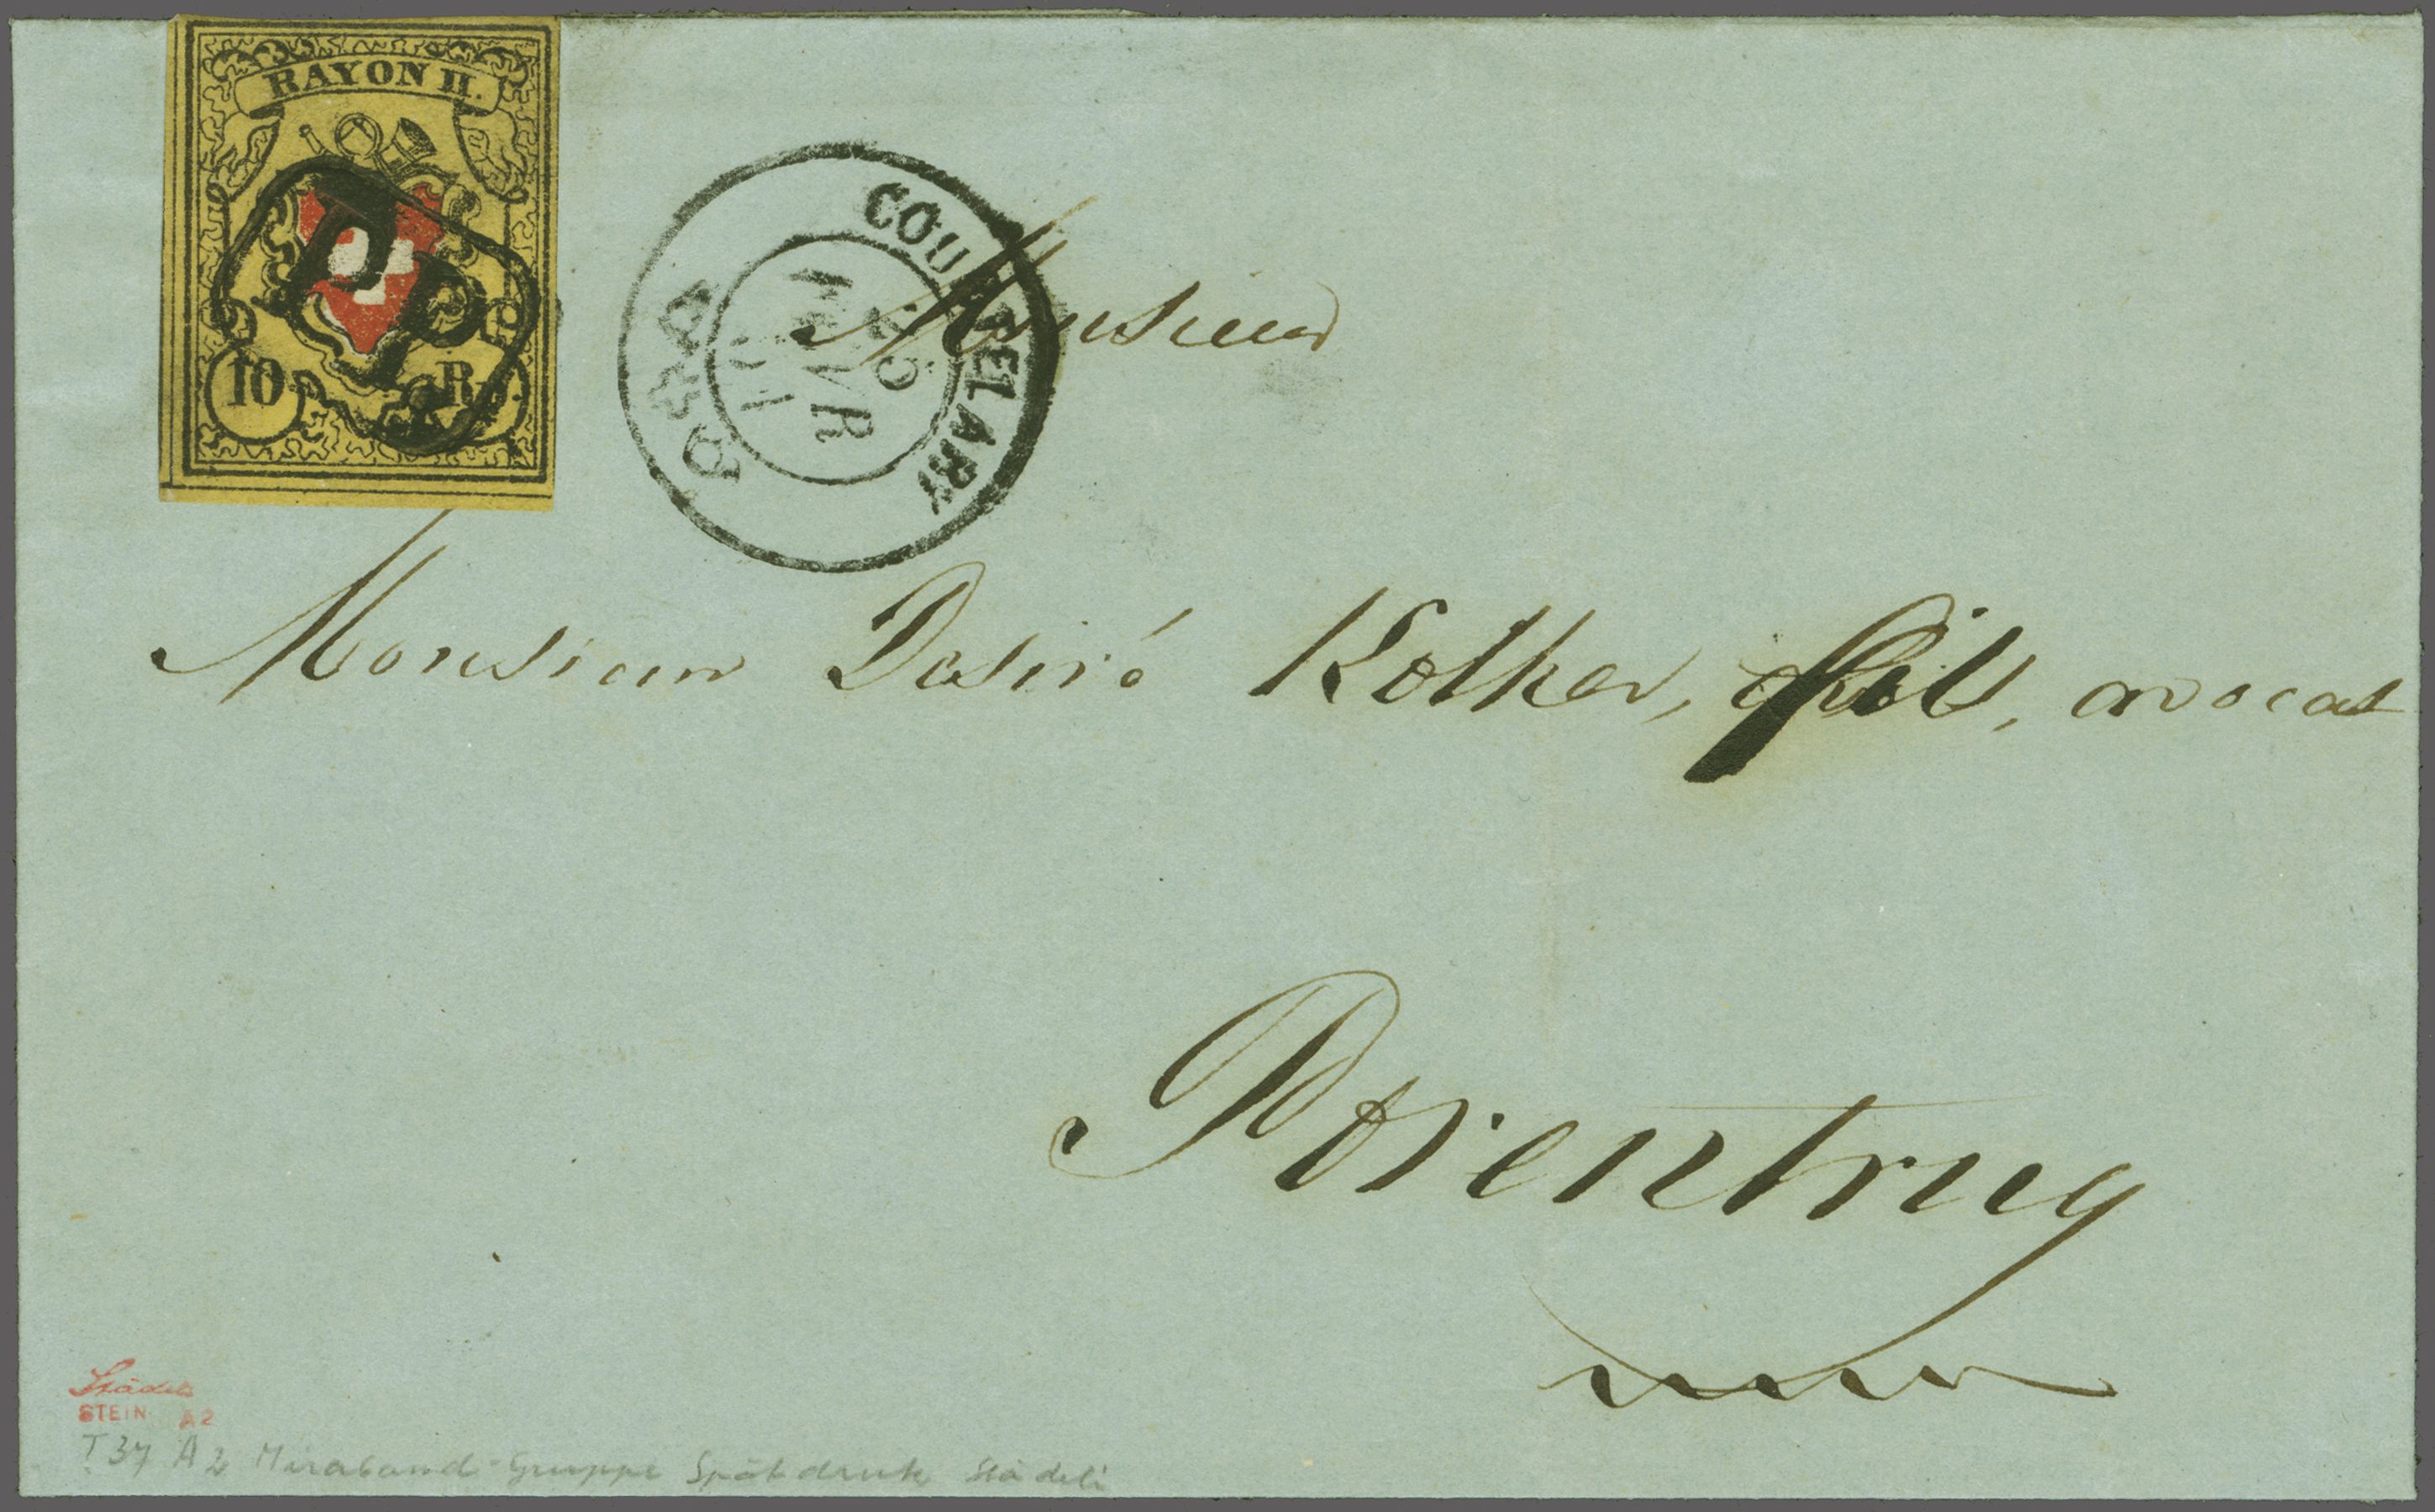 RAYON II.
PP
10 Rp.
COURTELARY
25
AVR
Monsieur
Monsieur Désiré Kolher, fils, avocat
Porrentruy
Städeli
STEIN A2
T 37 A2 Miraband-Gruppe Spätdruck Städeli